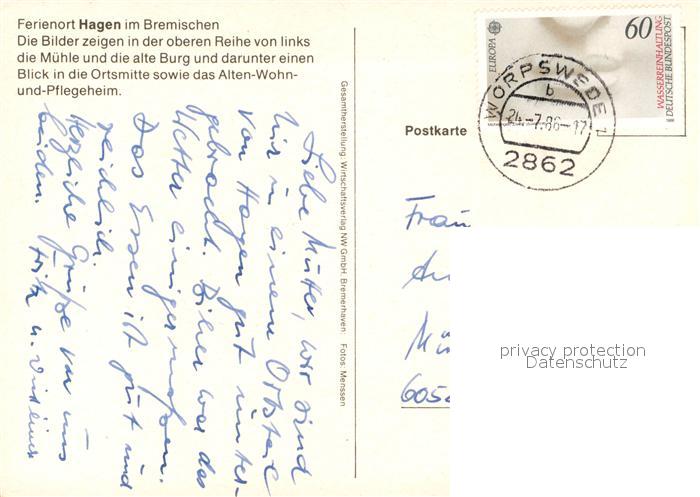 Ferienort Hagen im Bremischen
Die Bilder zeigen in der oberen Reihe von links
die Mühle und die alte Burg und darunter einen
Blick in die Ortsmitte sowie das Alten-Wohn-
und-Pflegeheim.
Liebe Mutter, wir sind
hier in einem Ortsteil
von Hagen gut unter-
gebracht. Bisher war das
Wetter einigermaßen.
Das Essen ist gut und
reichlich.
Herzliche Grüße von uns
beiden. Fritz u.
Gesamtherstellung: Wirtschaftsverlag NW GmbH, Bremerhaven Fotos: Menssen
Postkarte
EUROPA
60
WASSERREINHALTUNG
DEUTSCHE BUNDESPOST
WORPSWEDE 1
b
24.-7.86-17
2862
Frau
privacy protection
Datenschutz
605